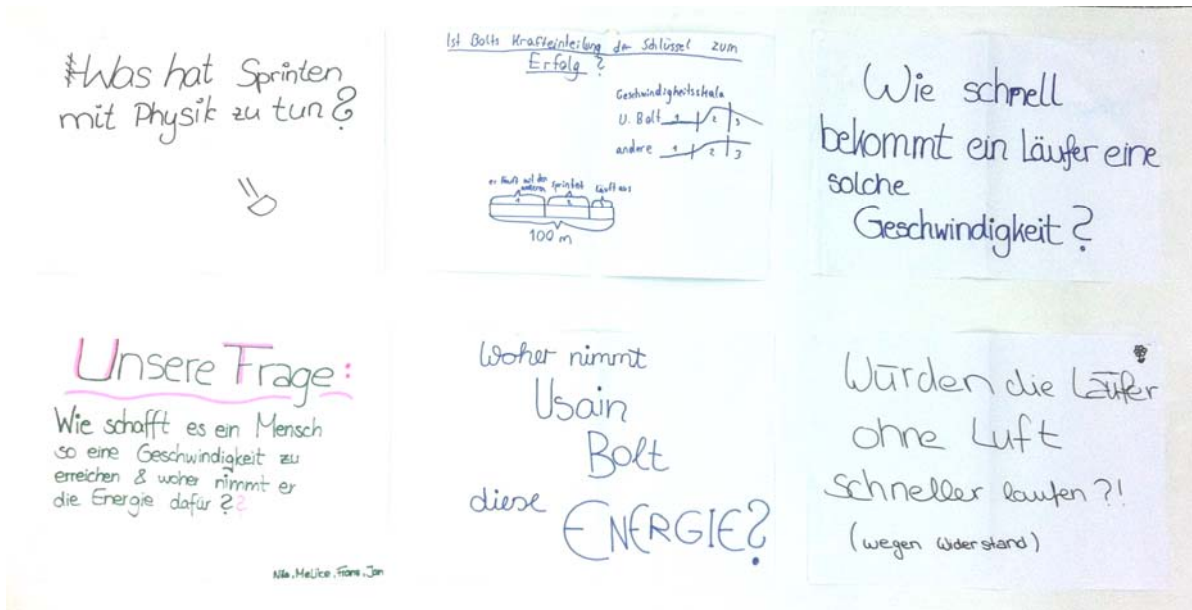 Was hat Sprinten
mit Physik zu tun?
Ist Bolts Krafteinteilung der Schlüssel zum
Erfolg?
Geschwindigkeitsskala
U. Bolt 1 2 3
andere 1 2 3
er läuft mit den anderen sprintet läuft aus
1 2 3
100 m
Wie schnell
bekommt ein Läufer eine
solche
Geschwindigkeit?
Unsere Frage:
Wie schafft es ein Mensch
so eine Geschwindigkeit zu
erreichen & woher nimmt er
die Energie dafür??
Melice, Frans, Jan
Woher nimmt
Usain
Bolt
diese
ENERGIE?
Würden die Läufer
ohne Luft
schneller laufen?!
(wegen Widerstand)